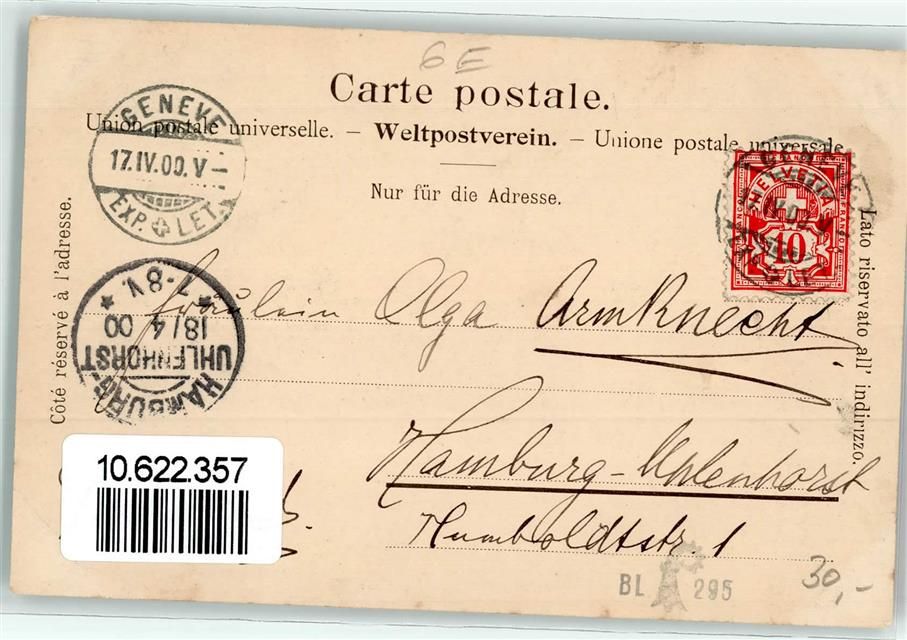 6E
Carte postale.
Union postale universelle. – Weltpostverein. – Unione postale universale
Nur für die Adresse.
Côté réservé à l'adresse.
Lato riservato all' indirizzo.
GENEVE
17.IV.00. V
EXP. LET.
HELVETIA
FRANCO
10
HAMBURG-
UHLENHORST
18/4 00
7-8V.
Fräulein Olga Armknecht
Hamburg-Uhlenhorst
Humboldtstr. 1
10.622.357
BL 295
30,-